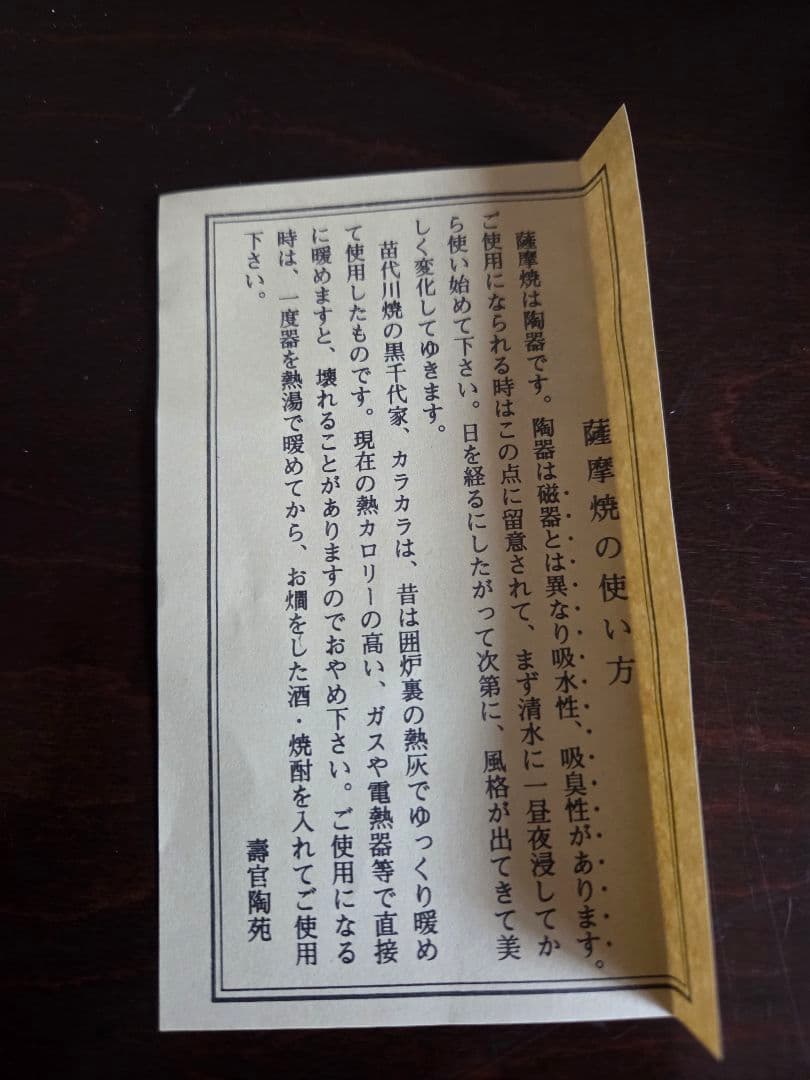 薩摩焼の使い方
薩摩焼は陶器です。陶器は磁器とは異なり吸水性、吸臭性があります。
ご使用になられる時はこの点に留意されて、まず清水に一昼夜浸してか
ら使い始めて下さい。日を経るにしたがって次第に、風格が出てきて美
しく変化してゆきます。
苗代川焼の黒千代家、カラカラは、昔は囲炉裏の熱灰でゆっくり暖め
て使用したものです。現在の熱カロリーの高い、ガスや電熱器等で直接
に暖めますと、壊れることがありますのでおやめ下さい。ご使用になる
時は、一度器を熱湯で暖めてから、お燗をした酒・焼酎を入れてご使用
下さい。
壽官陶苑